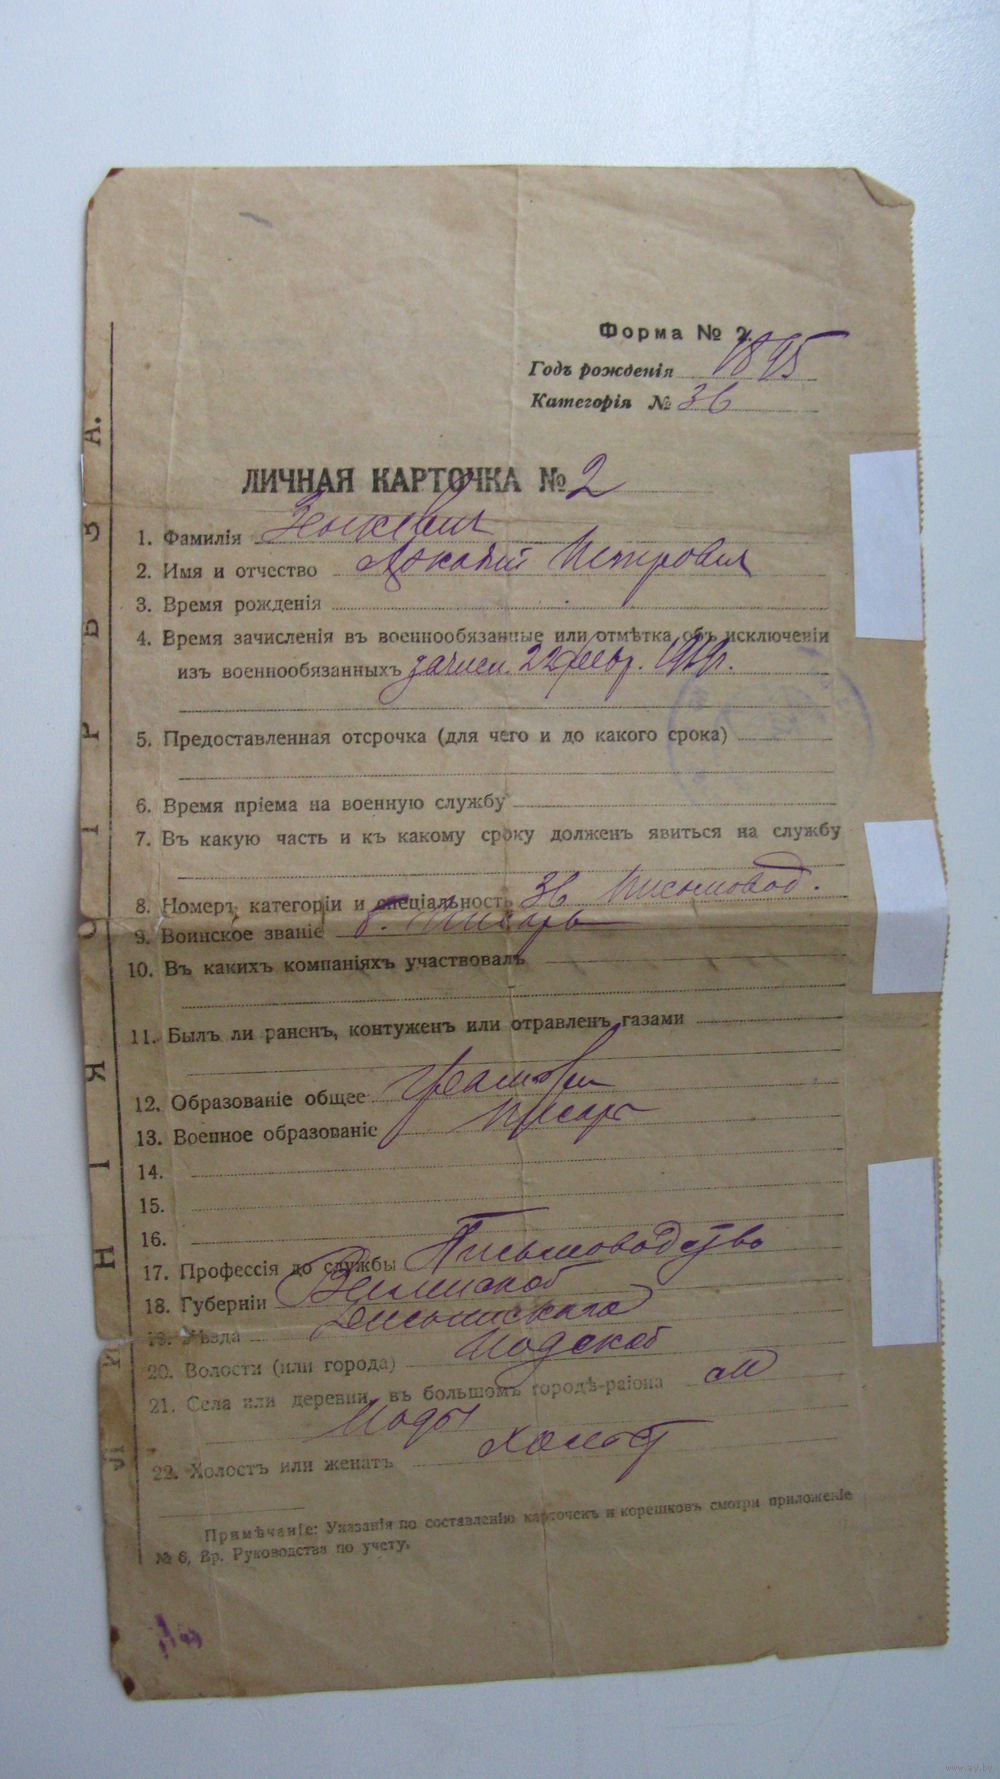 Форма № 2.
Годъ рожденія 1895
Категорія № 36
ЛИЧНАЯ КАРТОЧКА № 2
1. Фамилія Зенкевич
2. Имя и отчество Аркадій Петрович
3. Время рожденія
4. Время зачисленія въ военнообязанные или отмѣтка объ исключеніи
изъ военнообязанныхъ зачисл. 22 февр. 1919г.
5. Предоставленная отсрочка (для чего и до какого срока)
6. Время пріема на военную службу
7. Въ какую часть и къ какому сроку долженъ явиться на службу
8. Номеръ категоріи и спеціальность 36 Письмовод.
9. Воинское званіе б. Писарь
10. Въ какихъ компаніяхъ участвовалъ
11. Былъ ли раненъ, контуженъ или отравленъ газами
12. Образованіе общее
13. Военное образованіе Писарь
14.
15.
16.
17. Профессія до службы Письмоводство
18. Губерніи Виленской
19. Уѣзда Дисненскаго
20. Волости (или города) Іодской
21. Села или деревни, въ большомъ городѣ-раіона
Іоды
22. Холостъ или женатъ холост
Примѣчаніе: Указанія по составленію карточекъ и корешковъ смотри приложеніе
№ 6, Вр. Руководства по учету.
ЛИНІЯ ОТРѢЗА.
www.ay.by